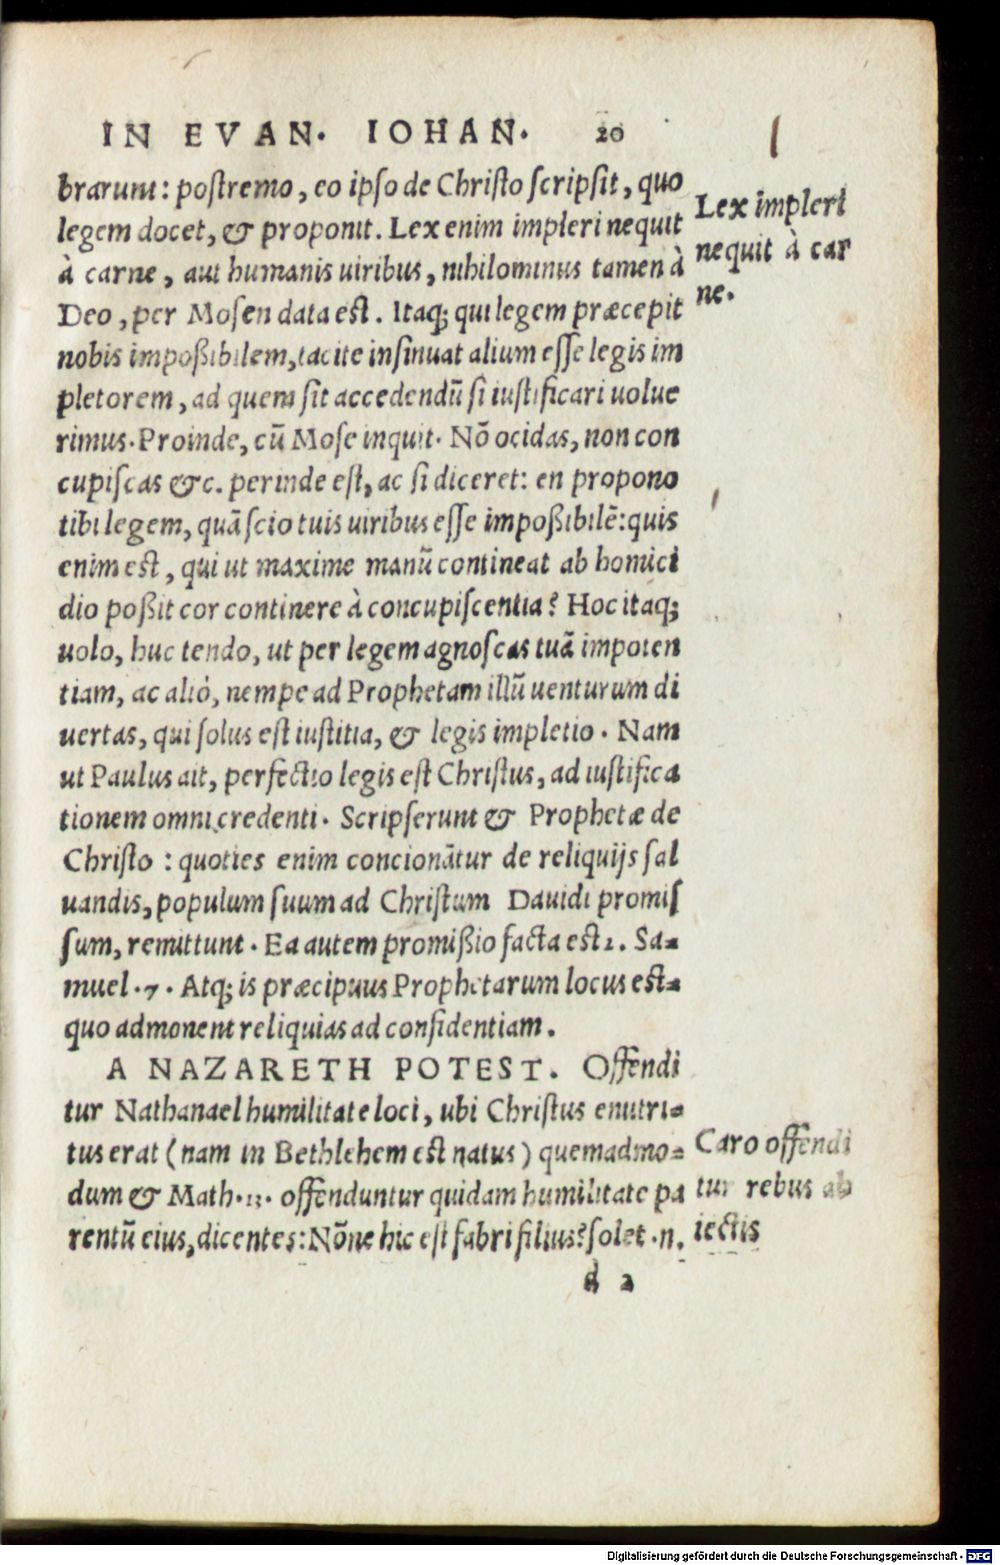 IN EVAN. IOHAN. 20
brarunt: postremo, eo ipso de Christo scripsit, quo
legem docet, & proponit. Lex enim impleri nequit
à carne, aut humanis uiribus, nihilominus tamen à
Deo, per Mosen data est. Itaq; qui legem præcepit
nobis impoßibilem, tacite insinuat alium esse legis im
pletorem, ad quem sit accedendū si iustificari uolue
rimus. Proinde, cū Mose inquit. Nō ocidas, non con
cupiscas &c. perinde est, ac si diceret: en propono
tibi legem, quā scio tuis uiribus esse impoßibilē: quis
enim est, qui ut maxime manū contineat ab homici
dio poßit cor continere à concupiscentia? Hoc itaq;
uolo, huc tendo, ut per legem agnoscas tuā impoten
tiam, ac aliò, nempe ad Prophetam illū uenturum di
uertas, qui solus est iustitia, & legis impletio. Nam
ut Paulus ait, perfectio legis est Christus, ad iustifica
tionem omni credenti. Scripserunt & Prophetæ de
Christo: quoties enim concionātur de reliquijs sal
uandis, populum suum ad Christum Dauidi promis
sum, remittunt. Ea autem promißio facta est 2. Sa-
muel. 7. Atq; is præcipuus Prophetarum locus est-
quo admonent reliquias ad confidentiam.
A NAZARETH POTEST. Offendi
tur Nathanael humilitate loci, ubi Christus enutri-
tus erat (nam in Bethlehem est natus) quemadmo-
dum & Math. 13. offenduntur quidam humilitate pa
rentū eius, dicentes: Nōne hic est fabri filius? solet .n.
d 2
Lex impleri
nequit à car
ne.
Caro offendi
tur rebus ab
iectis
Digitalisierung gefördert durch die Deutsche Forschungsgemeinschaft - DFG